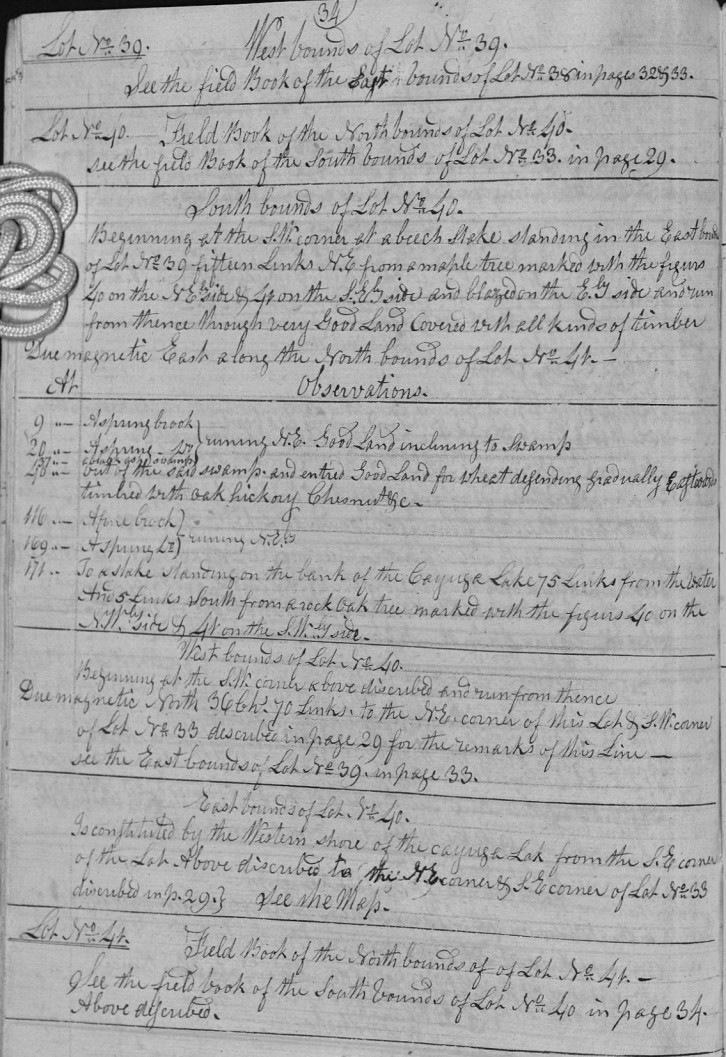 34
Lot No. 39. West bounds of Lot No. 39.
See the field Book of the East bounds of Lot No. 38 in pages 32 & 33.
Lot No. 40. Field Book of the North bounds of Lot No. 40.
see the field Book of the South bounds of Lot No. 33. in page 29.
South bounds of Lot No. 40.
Beginning at the S.W. corner at a beech Stake standing in the East bounds
of Lot No. 39 fifteen Links N.E. from a maple tree marked with the figurs
40 on the N.E.ly side & 41 on the S.E.ly side and blazed on the E.ly side and run
from thence through very Good Land Covered with all kinds of timber
Due magnetic East along the North bounds of Lot No. 41. —
At Observations.
9 " — A sprung brook }
20 " — A sprung — Do } runing N.E. Good Land inclining to Swamp
37 " —
40 " — out of the said swamp. and entred Good Land for wheat desending gradually Eastwards
timbred with oak hickory Chesnut &c —
116 " — A fine brook }
169 " — A sprung Do } runing N.E.
171 " To a stake standing on the bank of the Cayuga Lake 75 Links from the water
And 5 Links South from a rock Oak tree marked with the figurs 40 on the
N.W.ly side & 41 on the S.W.ly side.
West bounds of Lot No. 40.
Beginning at the S.W. corner above discribed and run from thence
Due magnetic North 36 Chs. 70 Links. to the N.E. corner of this Lot & S.W. corner
of Lot No. 33 described in page 29 for the remarks of this Line —
see the East bounds of Lot No. 39. in page 33.
East bounds of Lot No. 40.
Is constituted by the Western shore of the cayuga Lak from the S.E corner
of the Lot Above discribed to the N.E corner & S.E corner of Lot No. 33
discribed in p. 29. } See the Map.
Lot No. 41. Field Book of the North bounds of of Lot No. 41. —
See the field book of the South bounds of Lot No. 40 in page 34.
Above described.